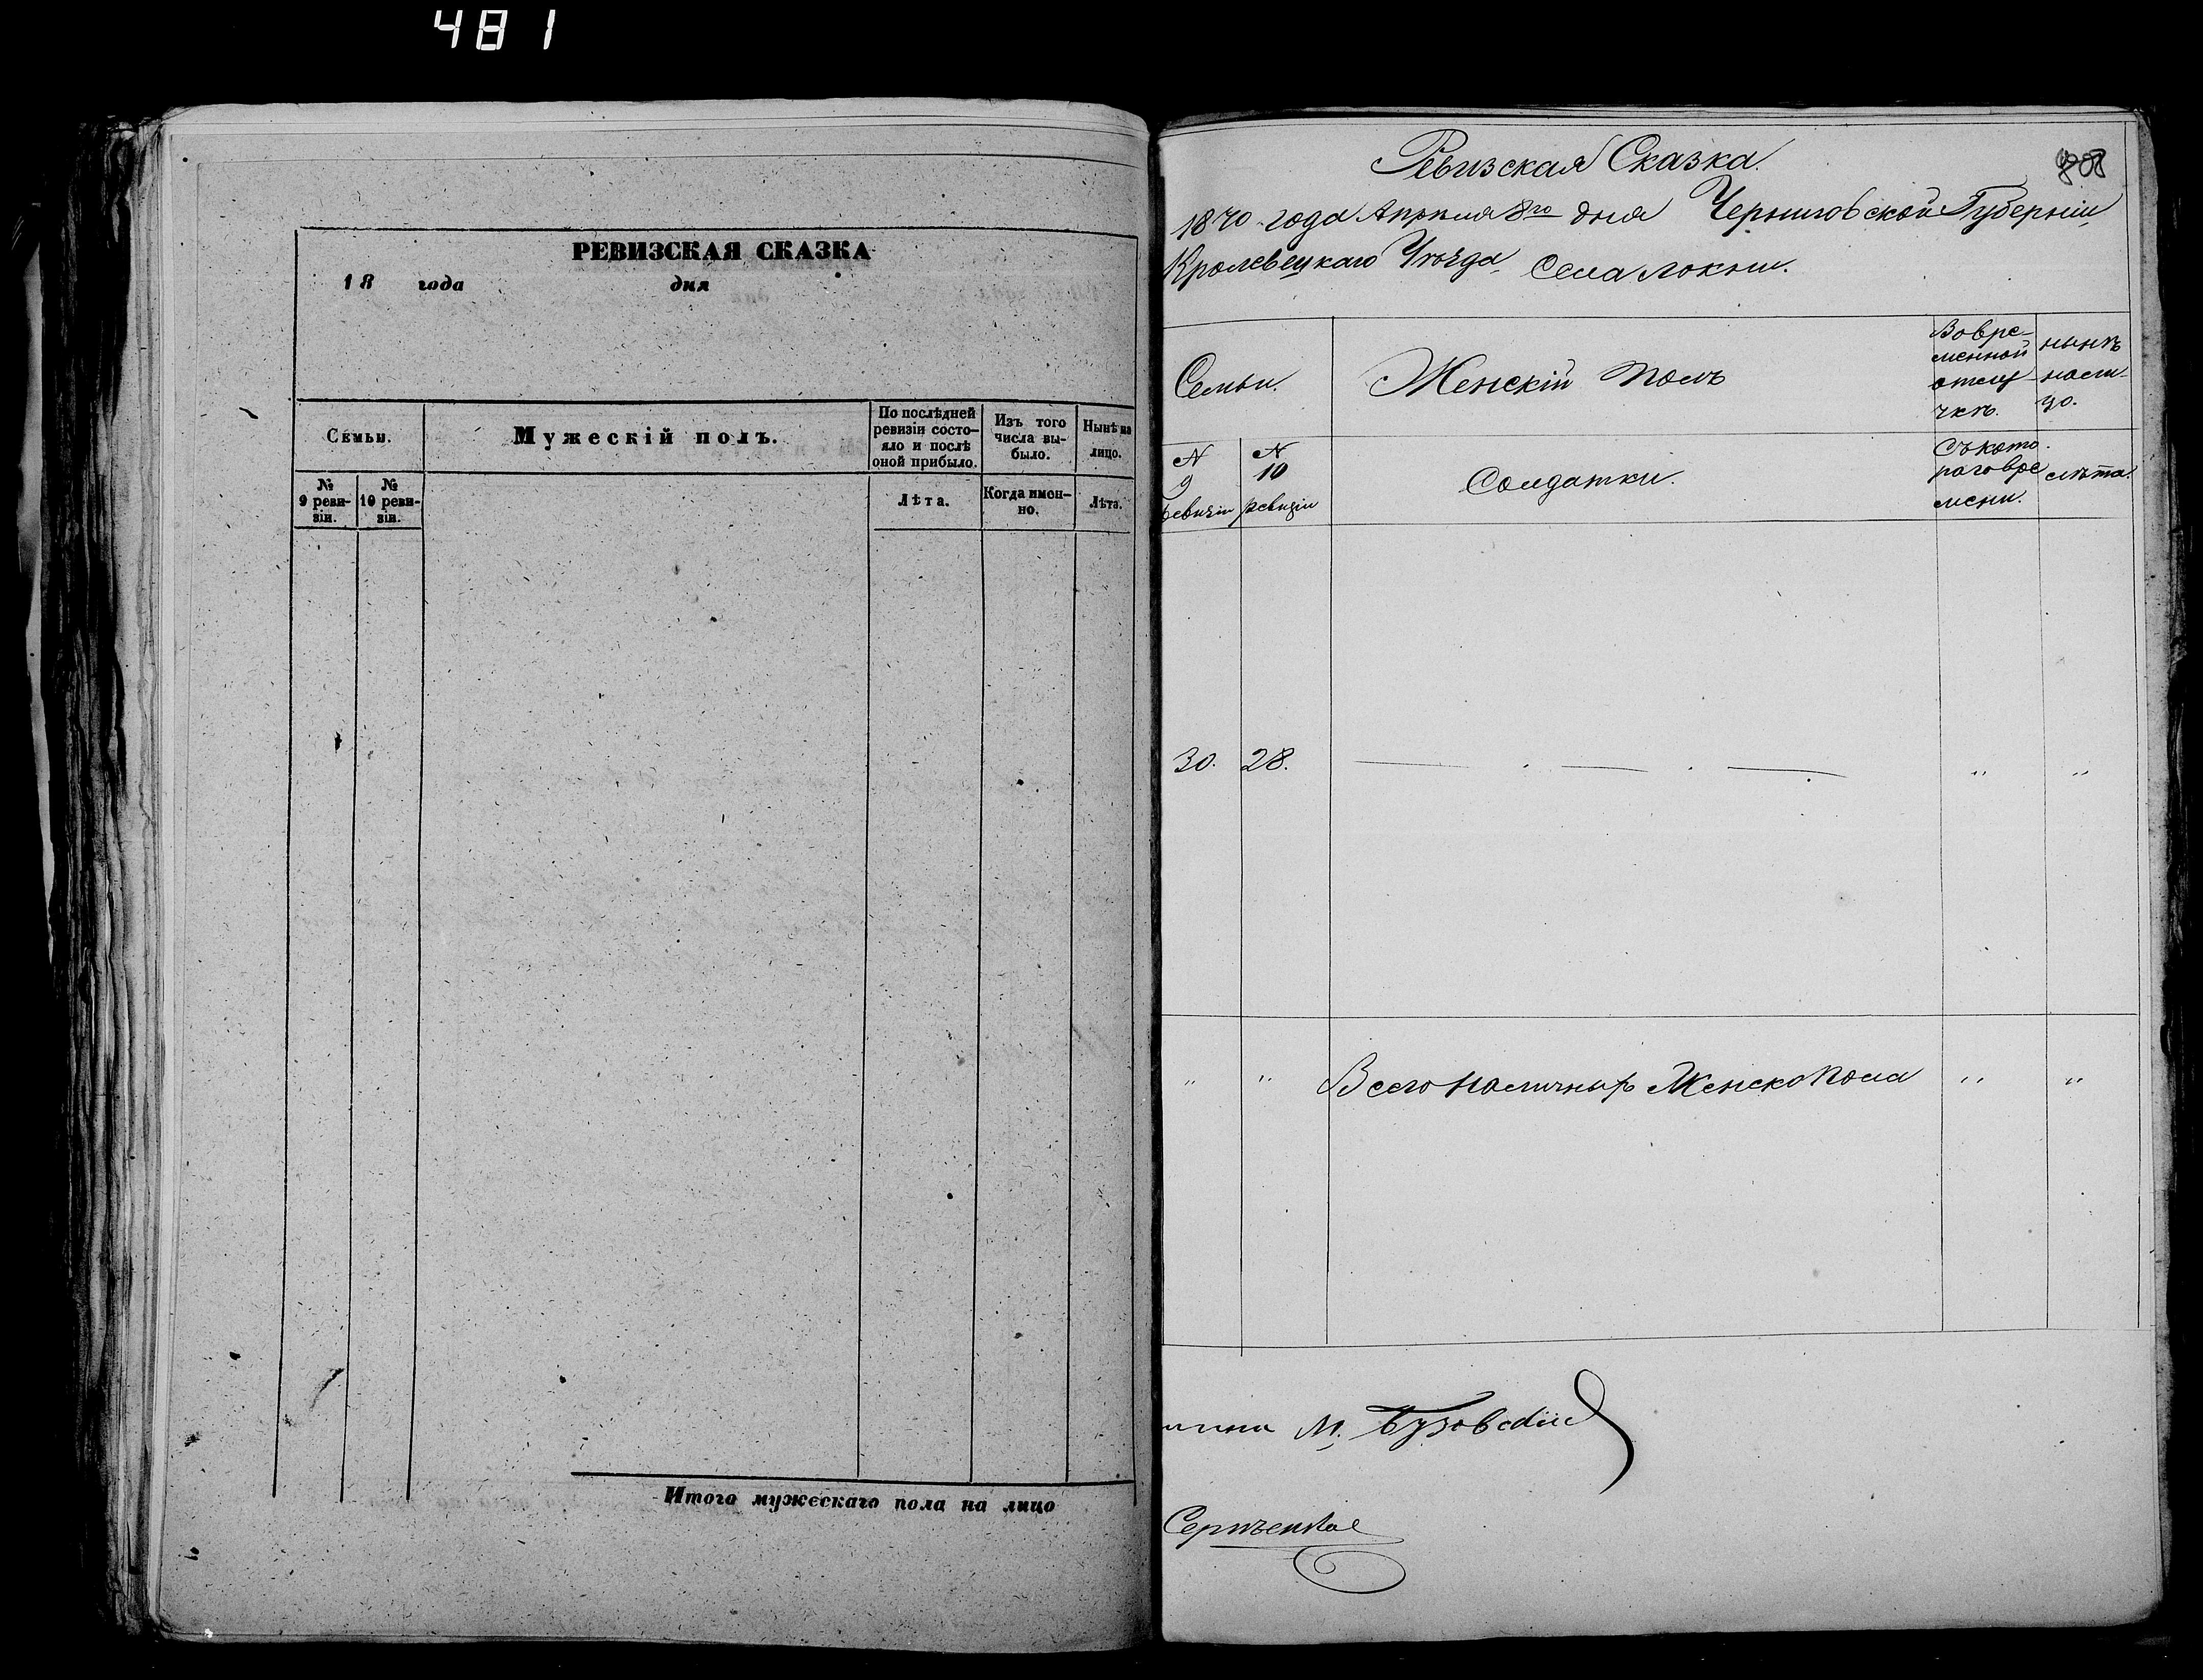 481
РЕВИЗСКАЯ СКАЗКА
18 года дня
Семьи.
Мужескій полъ.
По послѣдней
ревизіи состо-
яло и послѣ
оной прибыло.
Изъ того
числа вы-
было.
Нынѣ на
лицо.
№
9 реви-
зіи.
№
10 реви-
зіи.
Лѣта.
Когда имен-
но.
Лѣта.
Итого мужескаго пола на лицо
Ревизская Сказка.
1870 года Апрѣля 8го дня Черниговской Губерніи,
Кролевецкаго Уѣзда, Села Локни.
Семьи.
Женскій Полъ
Во вре-
менной
отлу-
чкѣ.
нынѣ
нали-
цо.
N
9
ревизіи
N
10
ревизіи
Солдатки.
Съ кото
раго вре
мени.
лѣта.
30. 28. — . — . — " "
" " Всего наличныхъ Женско Пола " "
М.